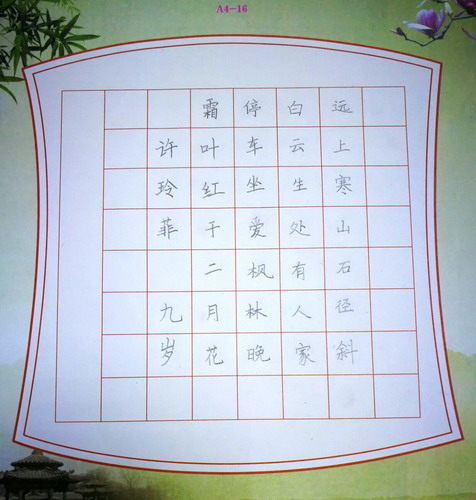 A4-16
远上寒山石径斜
白云生处有人家
停车坐爱枫林晚
霜叶红于二月花
许玲菲 九岁